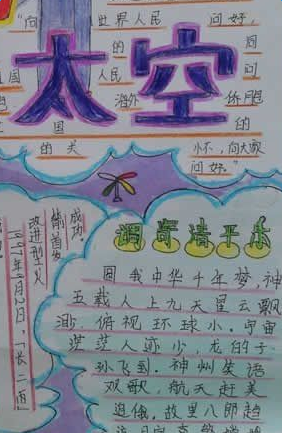 "向 世界人民 问好,
的 周
国 人民 问
太空
海外 侨胞
国 的
的关 怀,向大家
问好。"
成功。
偷首发
改进型火
1997年9月2日,「长二丙」
调寄清平乐
圆我中华千年梦,神
五载人上九天星云飘
渺.俯视环球小.宇宙
茫茫人迹少,龙的子
孙飞到.神州笑语
欢歌,航天赶美
追俄,故里八郎趋